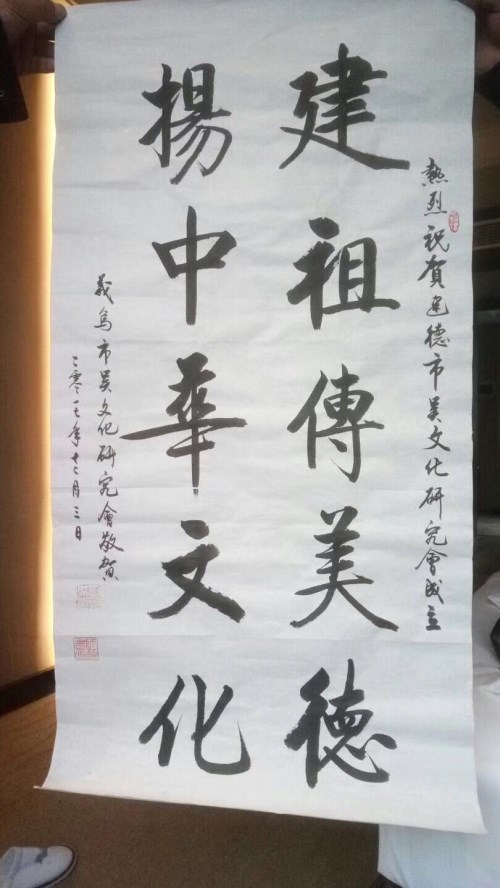 熱烈祝賀建德市吴文化研究會成立
建祖傳美德
揚中華文化
義烏市吴文化研究會敬賀
二零一七年十二月三日